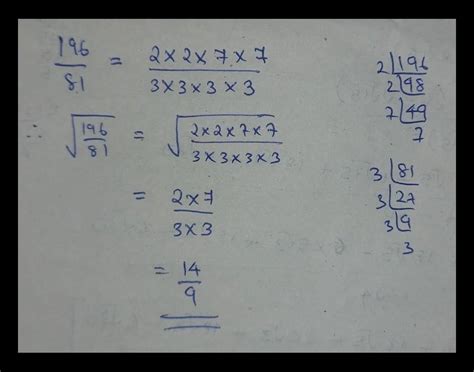 196/81 = 2×2×7×7/3×3×3×3
∴ √196/81 = √2×2×7×7/3×3×3×3
= 2×7/3×3
= 14/9
2|196
2|98
7|49
7
3|81
3|27
3|9
3